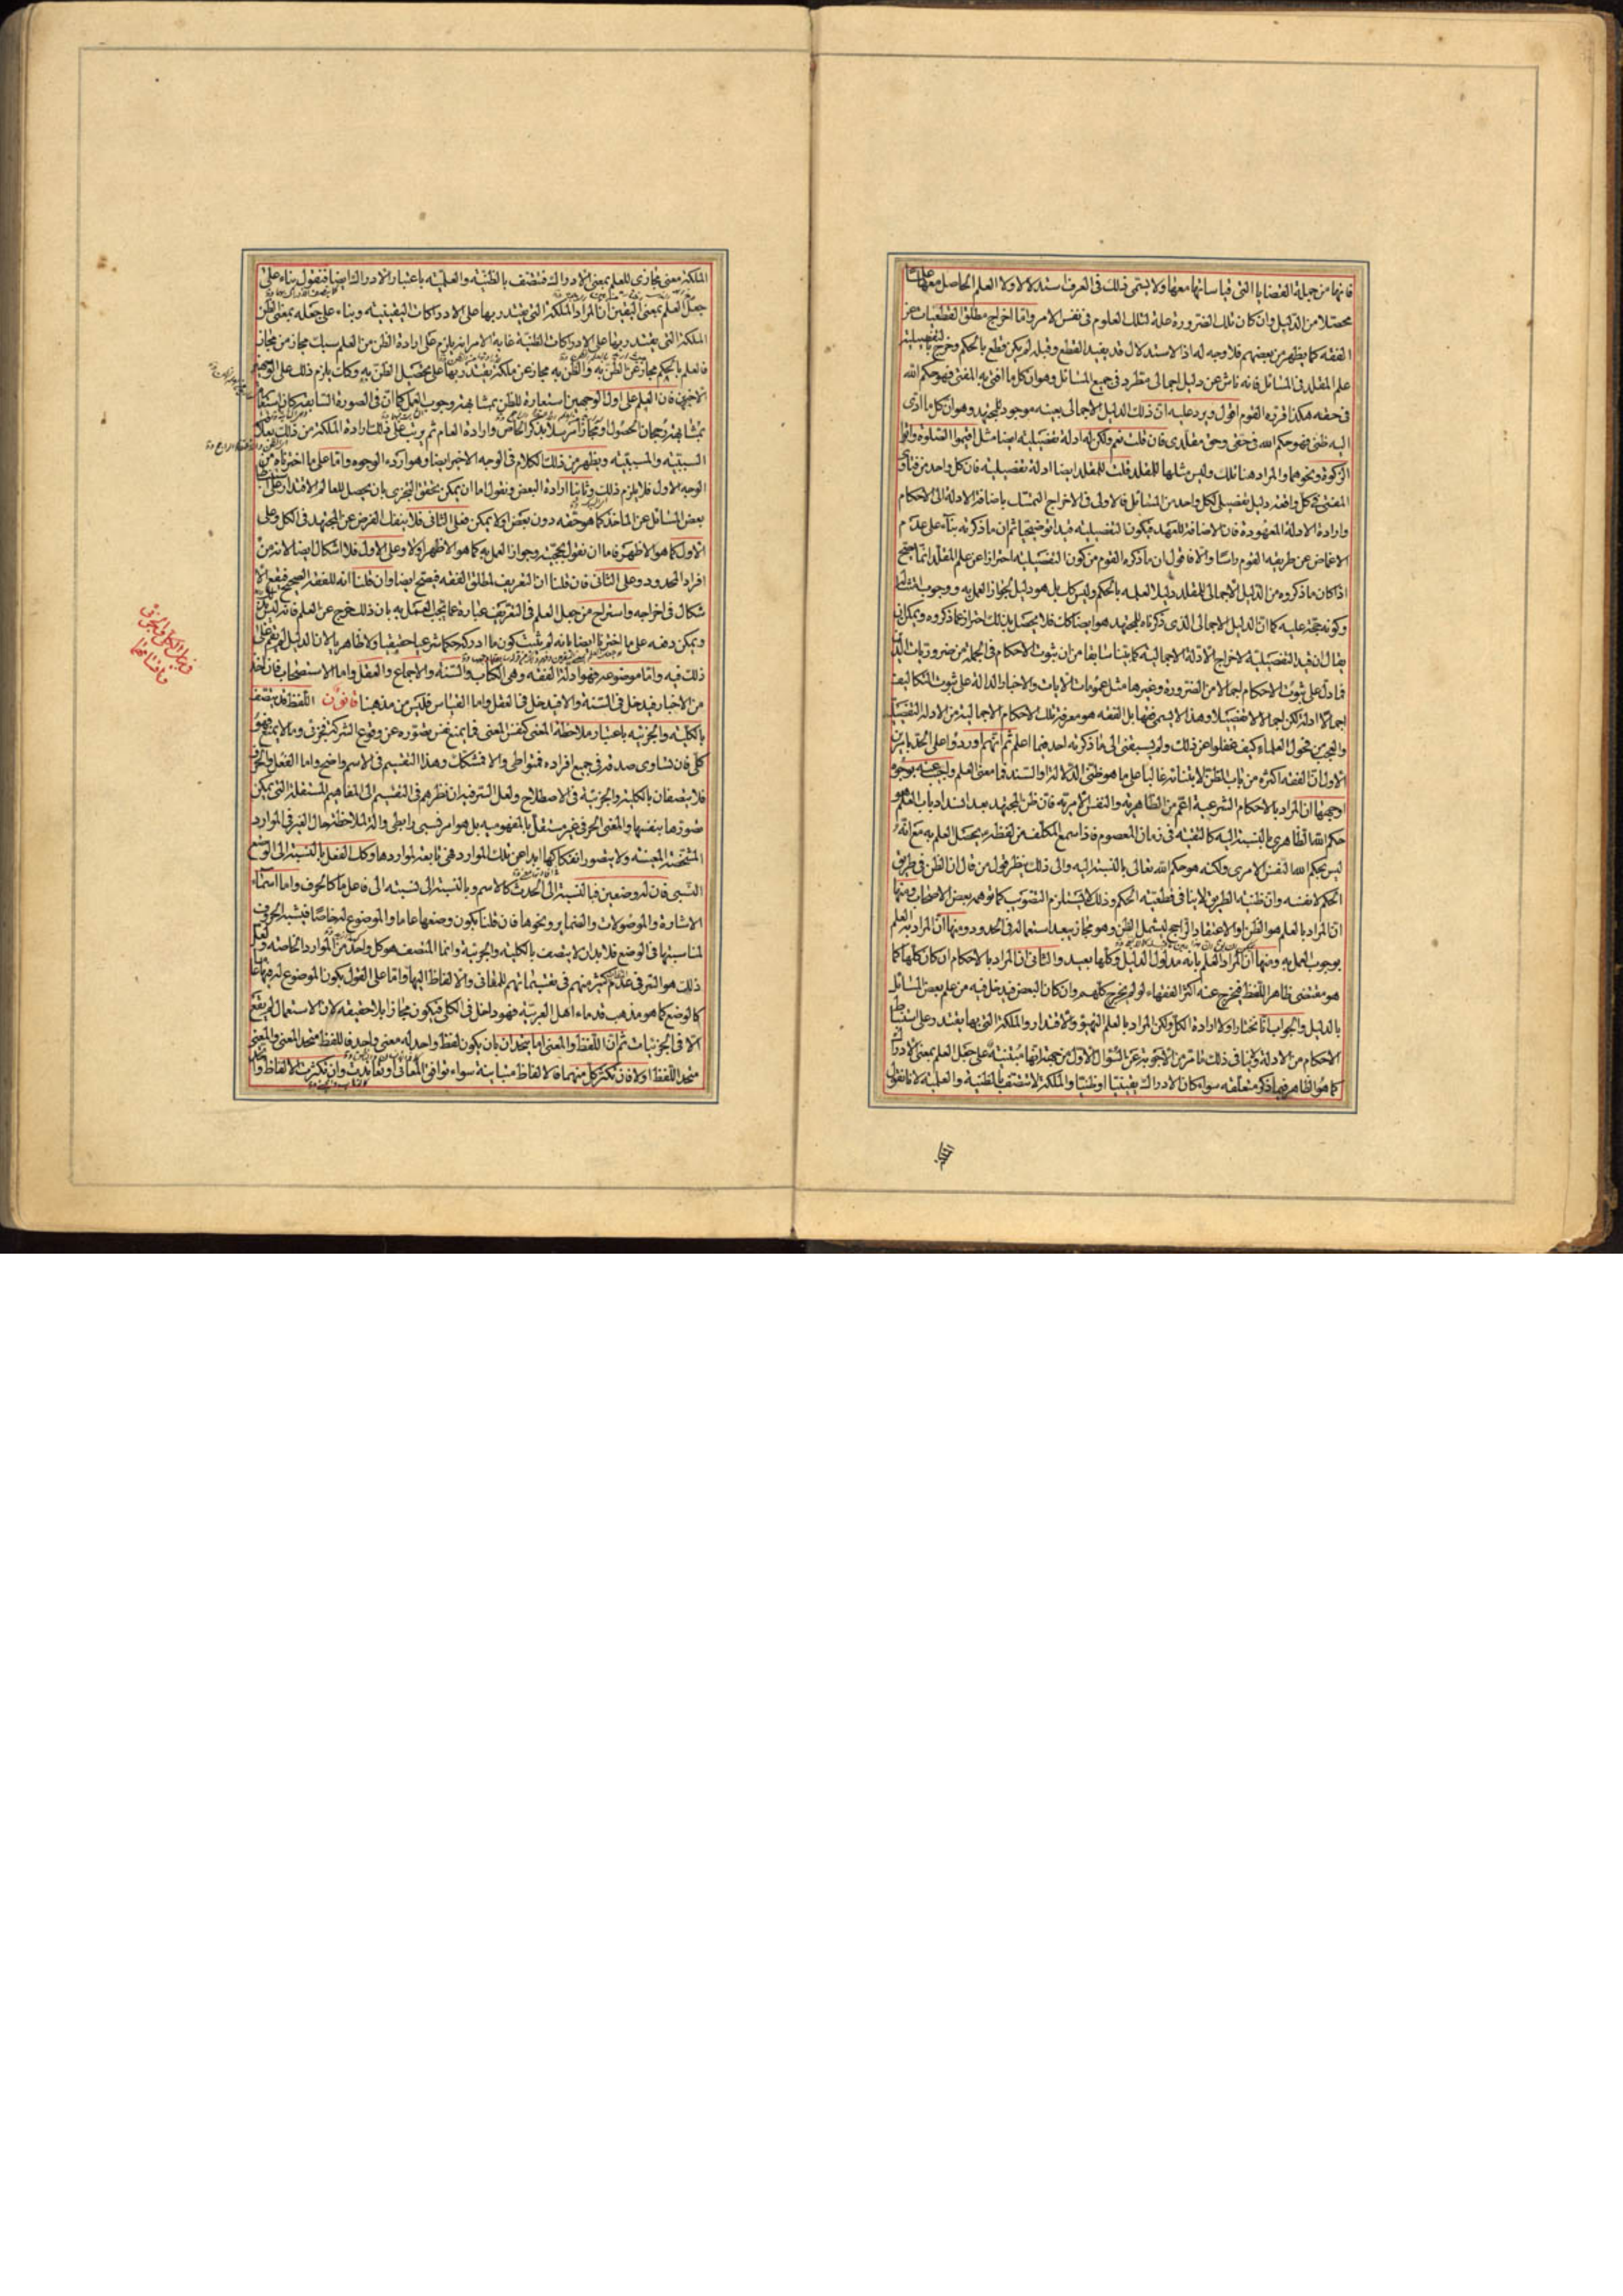 فانها من جملة القضايا التى قياساتها معها ولا يسمى ذلك فى العرف استدلالا ولا العلم الحاصل معها علما
محصلا من الدليل وان كان تلك الضرورة علة لتلك العلوم فى نفس الامر واما اخراج مطلق القطعيات عن
الفقه كما يظهر من بعضهم فلا وجه له اذ الاستدلال قد يفيد القطع وقبله لم يكن قطع بالحكم وخرج بالتفصيلية
علم المقلد فى المسائل فانه ناش عن دليل اجمالى مطرد فى جميع المسائل وهو ان كل ما افتى به المفتى فهو حكم الله
فى حقه هكذا قرره القوم اقول ويرد عليه ان ذلك الدليل الاجمالى بعينه موجود للمجتهد وهو ان كل ما ادى
اليه ظنى فهو حكم الله فى حقى وحق مقلدى فان قلت نعم ولكن له ادلة تفصيلية ايضا مثل اقيموا الصلوة واتوا
الزكوة ونحوهما والمراد هنا تلك وليس مثلها للمقلد قلت للمقلد ايضا ادلة تفصيلية فان كل واحد من فتاوى
المفتى فى كل واقعة دليل تفصيلى لكل واحد من المسائل فالاولى فى الاخراج التمسك باضافة الادلة الى الاحكام
وارادة الادلة المعهودة فان الاضافة للعهد فيكون التفصيلية قيدا توضيحيا ثم ان ما ذكرته بناء على عدم
الاغماض عن طريقة القوم راسا والا فاقول ان ما ذكره القوم من كون التفصيلية احترازا عن علم المقلد انما يصح
اذا كان ما ذكروه من الدليل الاجمالى للمقلد دليلا لعلمه بالحكم وليس كك بل هو دليل لجواز العمل به ووجوب امتثاله
وكونه حجة عليه كما ان الدليل الاجمالى الذى ذكرناه للمجتهد هو ايضا كك فلا يحصل بذلك احتراز عما ذكروه ويمكن ان
يقال ان قيد التفصيلية لاخراج الادلة الاجمالية كما بينا سابقا من ان ثبوت الاحكام فى الجملة من ضروريات الدين
فما دل على ثبوت الاحكام اجمالا من الضرورة وغيرها مثل عمومات الايات والاخبار الدالة على ثبوت التكاليف
اجمالا ادلة لكن اجمالا لا تفصيلا وهذا لا يسمى فقها بل الفقه هو معرفة تلك الاحكام الاجمالية من الادلة التفصيلية
والعجب من فحول العلماء كيف غفلوا عن ذلك ولم يسبقنى الى ما ذكرته احد فيما اعلم ثم انهم اوردوا على الحد بامرين
الاول ان الفقه اكثره من باب الظن لابتنائه غالبا على ما هو ظنى الدلالة او السند فما معنى العلم واجيب عنه بوجوه
اوجهها ان المراد بالاحكام الشرعية اعم من الظاهرية والنفس الامرية فان ظن المجتهد بعد انسداد باب العلم هو
حكم الله الظاهرى بالنسبة اليه كالتقية فى زمان المعصوم فاذا سمع المكلف من لفظه يحصل العلم به مع انه
ليس بحكم الله النفس الامرى ولكنه هو حكم الله تعالى بالنسبة اليه والى ذلك ينظر قول من قال ان الظن فى طريق
الحكم لا نفسه وان ظنية الطريق لا ينافى قطعية الحكم وذلك لا يستلزم التصويب كما توهمه بعض الاصحاب ومنها
ان المراد بالعلم هو الظن او الاعتقاد الراجح ليشمل الظن وهو مجاز يبعد استعماله فى الحدود ومنها ان المراد به العلم
بوجوب العمل به ومنها ان المراد العلم بانه مدلول الدليل وكلها بعيد والثانى ان المراد بالاحكام ان كان كلها كما
هو مقتضى ظاهر اللفظ فيخرج عنه اكثر الفقهاء لو لم يخرج كلهم وان كان البعض فيدخل فيه من علم بعض المسائل
بالدليل والجواب انا نختار اولا ارادة الكل ولكن المراد بالعلم التهيؤ والاقتدار والملكة التى بها يقتدر على استنباط
الاحكام من الادلة ولا ينافى ذلك ما مر من الاجوبة عن السؤال الاول من جهة انها مبتنية على جعل العلم بمعنى الادراك
كما هو الظاهر فيما ذكر متعلقه سواء كان الادراك يقينيا او ظنيا والملكة لا تتصف بالظنية والعلمية لانا نقول
الملكة معنى مجازى للعلم بمعنى الادراك فتتصف بالظنية والعلمية باعتبار الادراك ايضا فنقول بناء على
جعل العلم بمعنى اليقين ان المراد الملكة التى يقتدر بها على الادراكات اليقينية وبناء على جعله بمعنى الظن
الملكة التى يقتدر بها على الادراكات الظنية غاية الامر انه يلزم على ارادة الظن من العلم سبك مجاز من مجاز
فالعلم بالحكم مجاز عن الظن به والظن به مجاز عن ملكة يقتدر بها على تحصيل الظن به وكك يلزم ذلك على الوجهين
الاخيرين فان العلم على اول الوجهين استعارة للظن بمشابهة وجوب العمل كما ان فى الصورة السابقة كان استعارة
بمشابهة رجحان الحصول او مجازا مرسلا بذكر الخاص وارادة العام ثم يرتب على ذلك ارادة الملكة من ذلك بعلاقة
السببية والمسببية ويظهر من ذلك الكلام فى الوجه الاخير ايضا وهو اردء الوجوه واما على ما اخترناه من
الوجه الاول فلا يلزم ذلك وثانيا ارادة البعض ونقول اما ان يمكن تحقق التجزى بان يحصل للعالم الاقتدار على استنباط
بعض المسائل عن الماخذ كما هو حقه دون بعض او لا يمكن فعلى الثانى فلا ينفك الفرض عن المجتهد فى الكل وعلى
الاول كما هو الاظهر فاما ان نقول بحجيته وجواز العمل به كما هو الاظهر او لا وعلى الاول فلا اشكال ايضا لانه من
افراد المحدود وعلى الثانى فان قلنا ان التعريف لمطلق الفقه فيصح ايضا وان قلنا انه للفقه الصحيح فيقع الا
شكال فى اخراجه واستراح من جعل العلم فى التعريف عبارة عما يجب العمل به بان ذلك خرج عن العلم فانه ليس بذلك
ويمكن دفعه على ما اخترناه ايضا بانه لم يثبت كون ما ادركه حكما شرعيا حقيقيا ولا ظاهريا لان الدليل لم يقم على
ذلك فيه واما موضوعه فهو ادلة الفقه وهى الكتاب والسنة والاجماع والعقل واما الاستصحاب فان اخذ
من الاخبار فيدخل فى السنة والا فيدخل فى العقل واما القياس فليس من مذهبنا قانون اللفظ قد يتصف
بالكلية والجزئية باعتبار ملاحظة المعنى كنفس المعنى فما يمنع نفس تصوره عن وقوع الشركة فجزئى وما لا يمنع فهو
كلى فان تساوى صدقه فى جميع افراده فمتواطى والا فمشكك وهذا التقسيم فى الاسم واضح واما الفعل والحرف
فلا يتصفان بالكلية والجزئية فى الاصطلاح ولعل السر فيه ان نظرهم فى التقسيم الى المفاهيم المستقلة التى يمكن
تصورها بنفسها والمعنى الحرفى غير مستقل بالمفهومية بل هو امر نسبى رابطى والة لملاحظة حال الغير فى الموارد
المشخصة المعينة ولا يتصور انفكاكها ابدا عن تلك الموارد فهى تابعة لمواردها وكك الفعل بالنسبة الى الوضع
النسبى فان له وضعين فبالنسبة الى الحدث كالاسم وبالنسبة الى نسبته الى فاعل ما كالحرف واما اسماء
الاشارة والموصولات والضماير ونحوها فان قلنا بكون وضعها عاما والموضوع له خاصا فيشبه الحروف
لمناسبتها فى الوضع فلا بد ان لا يتصف بالكلية والجزئية وانما المتصف هو كل واحد من الموارد الخاصة ولعل
ذلك هو السر فى عدم كثير منهم فى تقسيماتهم للمعانى والالفاظ اليها واما على القول بكون الموضوع له فيها عاما
كالوضع كما هو مذهب قدماء اهل العربية فهو داخل فى الكلى فيكون مجازا بلا حقيقة لان الاستعمال لم يقع
الا فى الجزئيات ثم ان اللفظ والمعنى اما يتحدان بان يكون لفظ واحد له معنى واحد فاللفظ متحد المعنى والمعنى
متحد اللفظ او لا فان تكثر كل منهما فالالفاظ متباينة سواء توافق المعانى او تعاندت وان تكثرت الالفاظ واتحد